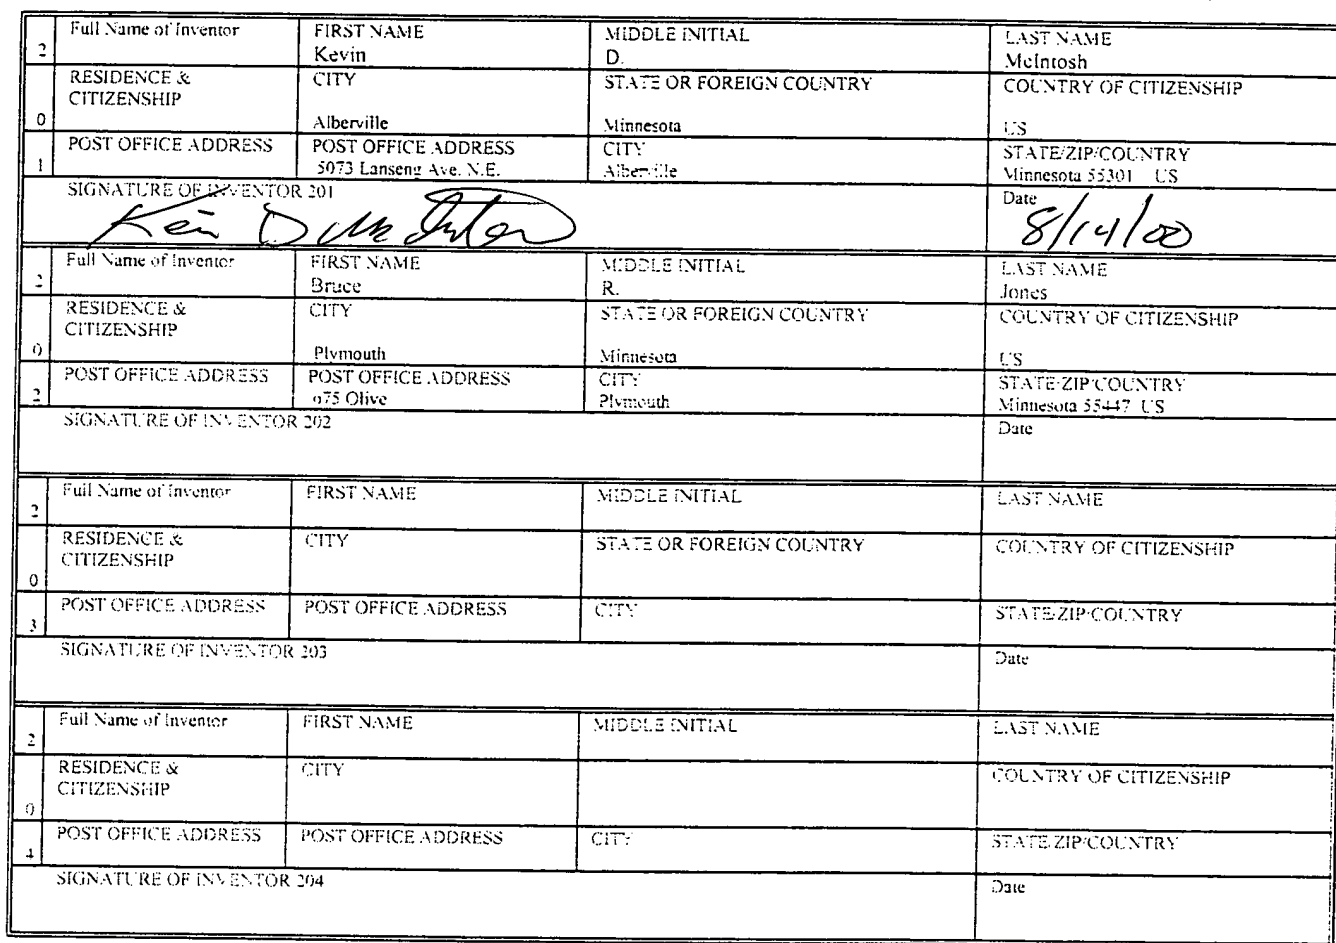 2 Full Name of Inventor FIRST NAME MIDDLE INITIAL LAST NAME
Kevin D. McIntosh
0 RESIDENCE & CITIZENSHIP CITY STATE OR FOREIGN COUNTRY COUNTRY OF CITIZENSHIP
Alberville Minnesota US
1 POST OFFICE ADDRESS POST OFFICE ADDRESS CITY STATE/ZIP/COUNTRY
5073 Lanseng Ave. N.E. Alberville Minnesota 55301 US
SIGNATURE OF INVENTOR 201 Date
Kevin D McIntosh 8/14/00
2 Full Name of Inventor FIRST NAME MIDDLE INITIAL LAST NAME
Bruce R. Jones
0 RESIDENCE & CITIZENSHIP CITY STATE OR FOREIGN COUNTRY COUNTRY OF CITIZENSHIP
Plymouth Minnesota US
2 POST OFFICE ADDRESS POST OFFICE ADDRESS CITY STATE/ZIP/COUNTRY
Olive Plymouth Minnesota 55447 US
SIGNATURE OF INVENTOR 202 Date
2 Full Name of Inventor FIRST NAME MIDDLE INITIAL LAST NAME
0 RESIDENCE & CITIZENSHIP CITY STATE OR FOREIGN COUNTRY COUNTRY OF CITIZENSHIP
3 POST OFFICE ADDRESS POST OFFICE ADDRESS CITY STATE/ZIP/COUNTRY
SIGNATURE OF INVENTOR 203 Date
2 Full Name of Inventor FIRST NAME MIDDLE INITIAL LAST NAME
0 RESIDENCE & CITIZENSHIP CITY COUNTRY OF CITIZENSHIP
4 POST OFFICE ADDRESS POST OFFICE ADDRESS CITY STATE/ZIP/COUNTRY
SIGNATURE OF INVENTOR 204 Date